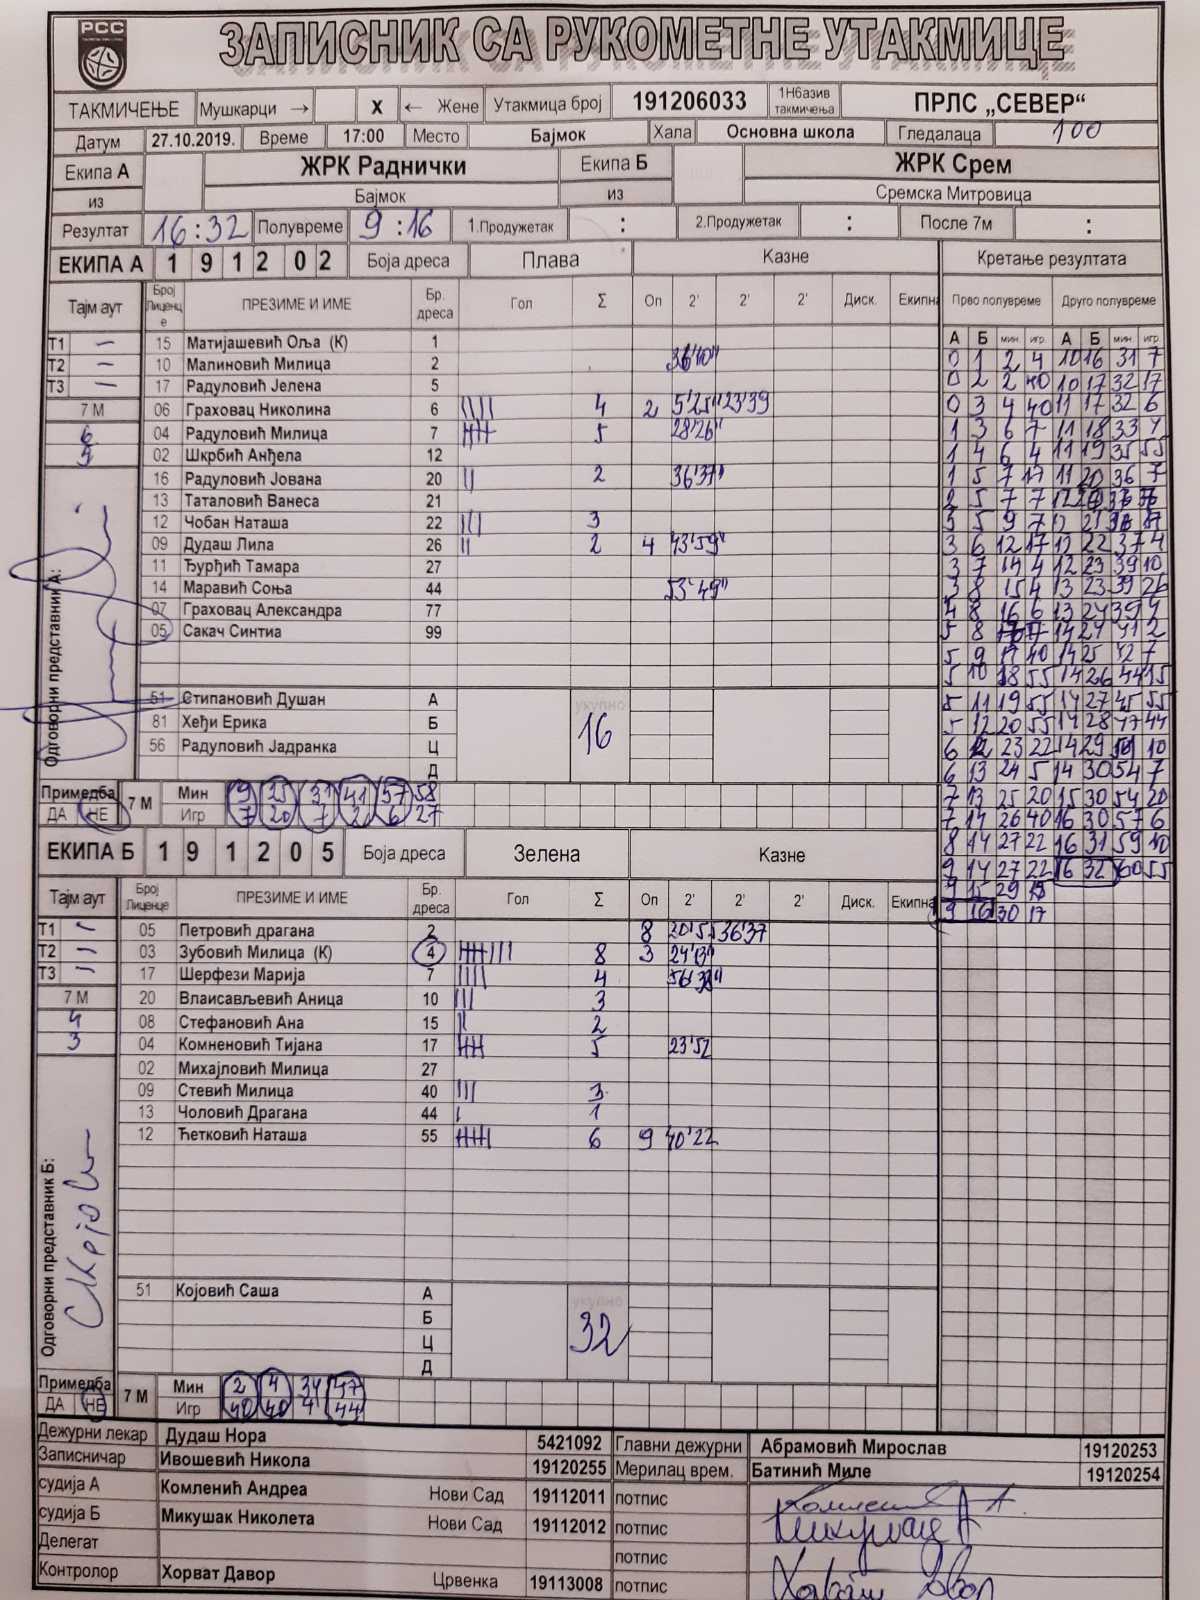 РСС
ЗАПИСНИК СА РУКОМЕТНЕ УТАКМИЦЕ
ТАКМИЧЕЊЕ Мушкарци → X ← Жене Утакмица број 191206033 1Н6азив такмичења ПРЛС „СЕВЕР“
Датум 27.10.2019. Време 17:00 Место Бајмок Хала Основна школа Гледалаца 100
Екипа А ЖРК Раднички Екипа Б ЖРК Срем
из Бајмок из Сремска Митровица
Резултат 16:32 Полувреме 9:16 1.Продужетак : 2.Продужетак : После 7м :
ЕКИПА А 1 9 1 2 0 2 Боја дреса Плава Казне Кретање резултата
Тајм аут Број Лиценце ПРЕЗИМЕ И ИМЕ Бр. дреса Гол Σ Оп 2' 2' 2' Диск. Екипна Прво полувреме Друго полувреме
А Б мин. игр. А Б мин. игр.
Т1 – 15 Матијашевић Оља (К) 1
Т2 – 10 Малиновић Милица 2
Т3 – 17 Радуловић Јелена 5
7 М 06 Граховац Николина 6 4 2 5'25" 23'39
6 04 Радуловић Милица 7 5 28'26"
5 02 Шкрбић Анђела 12
16 Радуловић Јована 20 2 36'37"
13 Таталовић Ванеса 21
12 Чобан Наташа 22 3
09 Дудаш Лила 26 2 4 43'59"
11 Ђурђић Тамара 27
14 Маравић Соња 44 53'49"
07 Граховац Александра 77
05 Сакач Синтиа 99
51 Стипановић Душан А
81 Хеђи Ерика Б
56 Радуловић Јадранка Ц
Д
укупно
16
Одговорни представник А:
0 1 2 4 10 16 31 7
0 2 2 40 10 17 32 17
0 3 4 40 11 17 32 6
1 3 6 7 11 18 33
1 4 6 4 11 19 35 55
1 5 7 17 11 20 36 7
2 5 7 7
3 5 9 7
3 6 12 17 12 22 37 4
3 7 14 4 12 23 39 10
3 8 15 4 13 23 39 26
4 8 16 6 13 24 39 4
5 8 14 24 41 2
5 9 17 40 14 25 42 7
5 10 18 55 14 26 44 15
5 11 19 55 14 27 45 55
5 12 20 55 14 28 47 44
6 12 23 22 14 29 10
6 13 24 5 14 30 54 7
7 13 25 20 15 30 54 20
7 14 26 40 16 30 57 6
8 14 27 22 16 31 59 10
9 14 27 22 16 32 60 55
9 15 29
9 16 30 17
Примедба ДА НЕ 7 М Мин 9 25 31 41 57 58
Игр 7 20 7 20 6 27
ЕКИПА Б 1 9 1 2 0 5 Боја дреса Зелена Казне
Тајм аут Број Лиценце ПРЕЗИМЕ И ИМЕ Бр. дреса Гол Σ Оп 2' 2' 2' Диск. Екипна
Т1 05 Петровић драгана 2 8 20'5 36'37
Т2 03 Зубовић Милица (К) 4 8 3 24'13"
Т3 17 Шерфези Марија 7 4
7 М 20 Влаисављевић Аница 10 3
4 08 Стефановић Ана 15 2
3 04 Комненовић Тијана 17 5 23'52
02 Михајловић Милица 27
09 Стевић Милица 40 3
13 Чоловић Драгана 44 1
12 Ћетковић Наташа 55 6 9 40'22
51 Којовић Саша А
Б
Ц
Д
укупно
32
Одговорни представник Б:
Примедба ДА НЕ 7 М Мин 2 4 34 47
Игр 40 40 4 44
Дежурни лекар Дудаш Нора 5421092 Главни дежурни Абрамовић Мирослав 19120253
Записничар Ивошевић Никола 19120255 Мерилац врем. Батинић Миле 19120254
судија А Комленић Андреа Нови Сад 19112011 потпис
судија Б Микушак Николета Нови Сад 19112012 потпис
Делегат потпис
Контролор Хорват Давор Црвенка 19113008 потпис